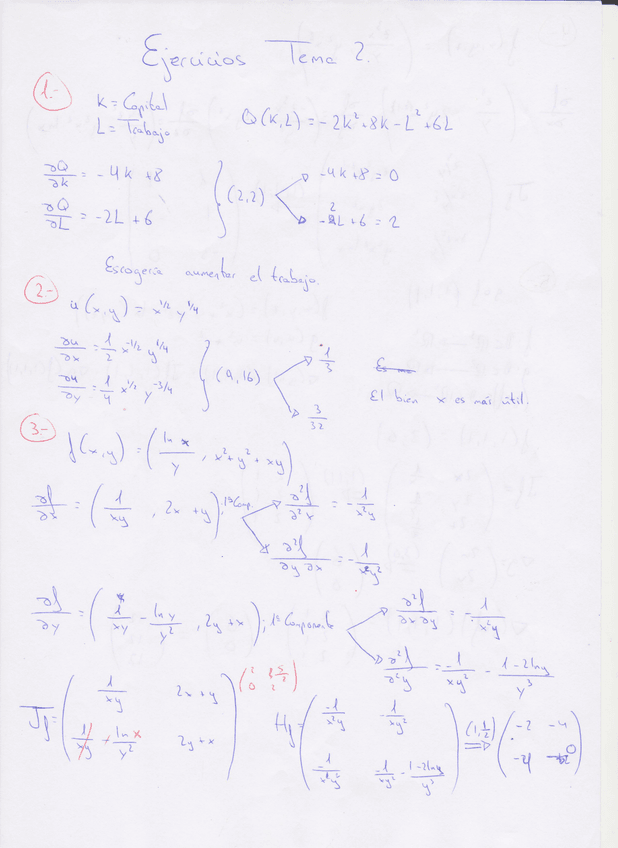 Ejercicios Tema 2.
1.-
K = Capital
L = Trabajo
Q(K,L) = -2K²+8K-L²+6L
∂Q/∂K = -4K+8
∂Q/∂L = -2L+6
(2,2)
-4K+8=0
-2L+6=2
Escogería aumentar el trabajo.
2.-
u(x,y) = x^1/2 y^1/4
∂u/∂x = 1/2 x^-1/2 y^1/4
∂u/∂y = 1/4 x^1/2 y^-3/4
(9,16)
1/3
3/32
El bien x es más útil.
3.-
f(x,y) = (ln x/y, x²+y²+xy)
∂f/∂x = (1/xy, 2x+y); 1ª Comp.
∂²f/∂²x = -1/x²y
∂²f/∂y∂x = -1/xy²
∂f/∂y = (1/xy - ln y/y², 2y+x); 1ª Componente
∂²f/∂x∂y = -1/x²y
∂²f/∂²y = -1/xy² - 1-2lny/y³
Jf = (1/xy 2x+y
1/xy + lnx/y² 2y+x)
Hf = (-1/x²y -1/xy²
-1/x²y² -1/xy² - 1-2lny/y³)
(1,1/2)
⇒ (-2 -4